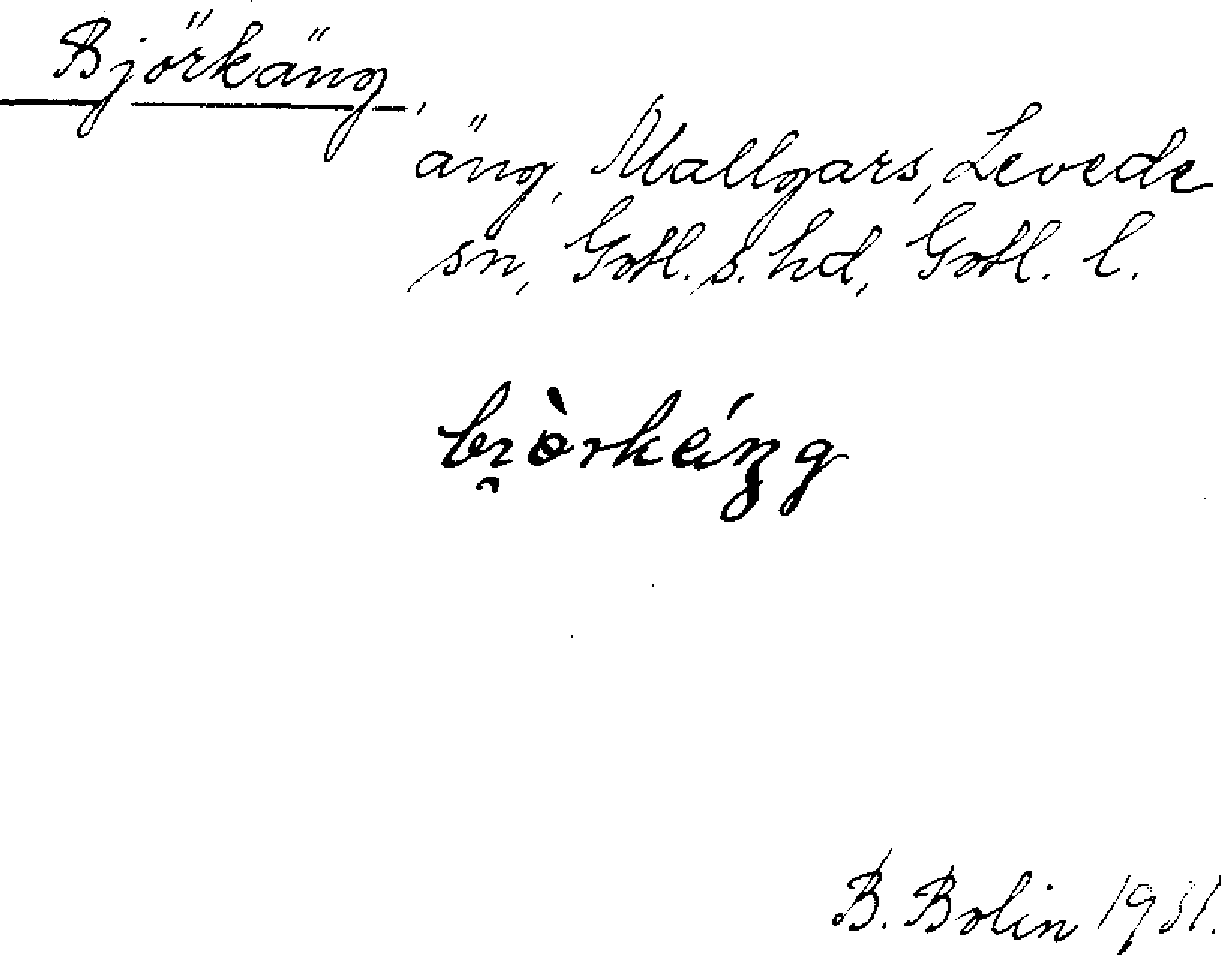 Björkäng,
äng, Mallgars, Levede
sn, Gotl. s. hd, Gotl. l.
bi̯òrkéŋg
B. Bolin 1931.